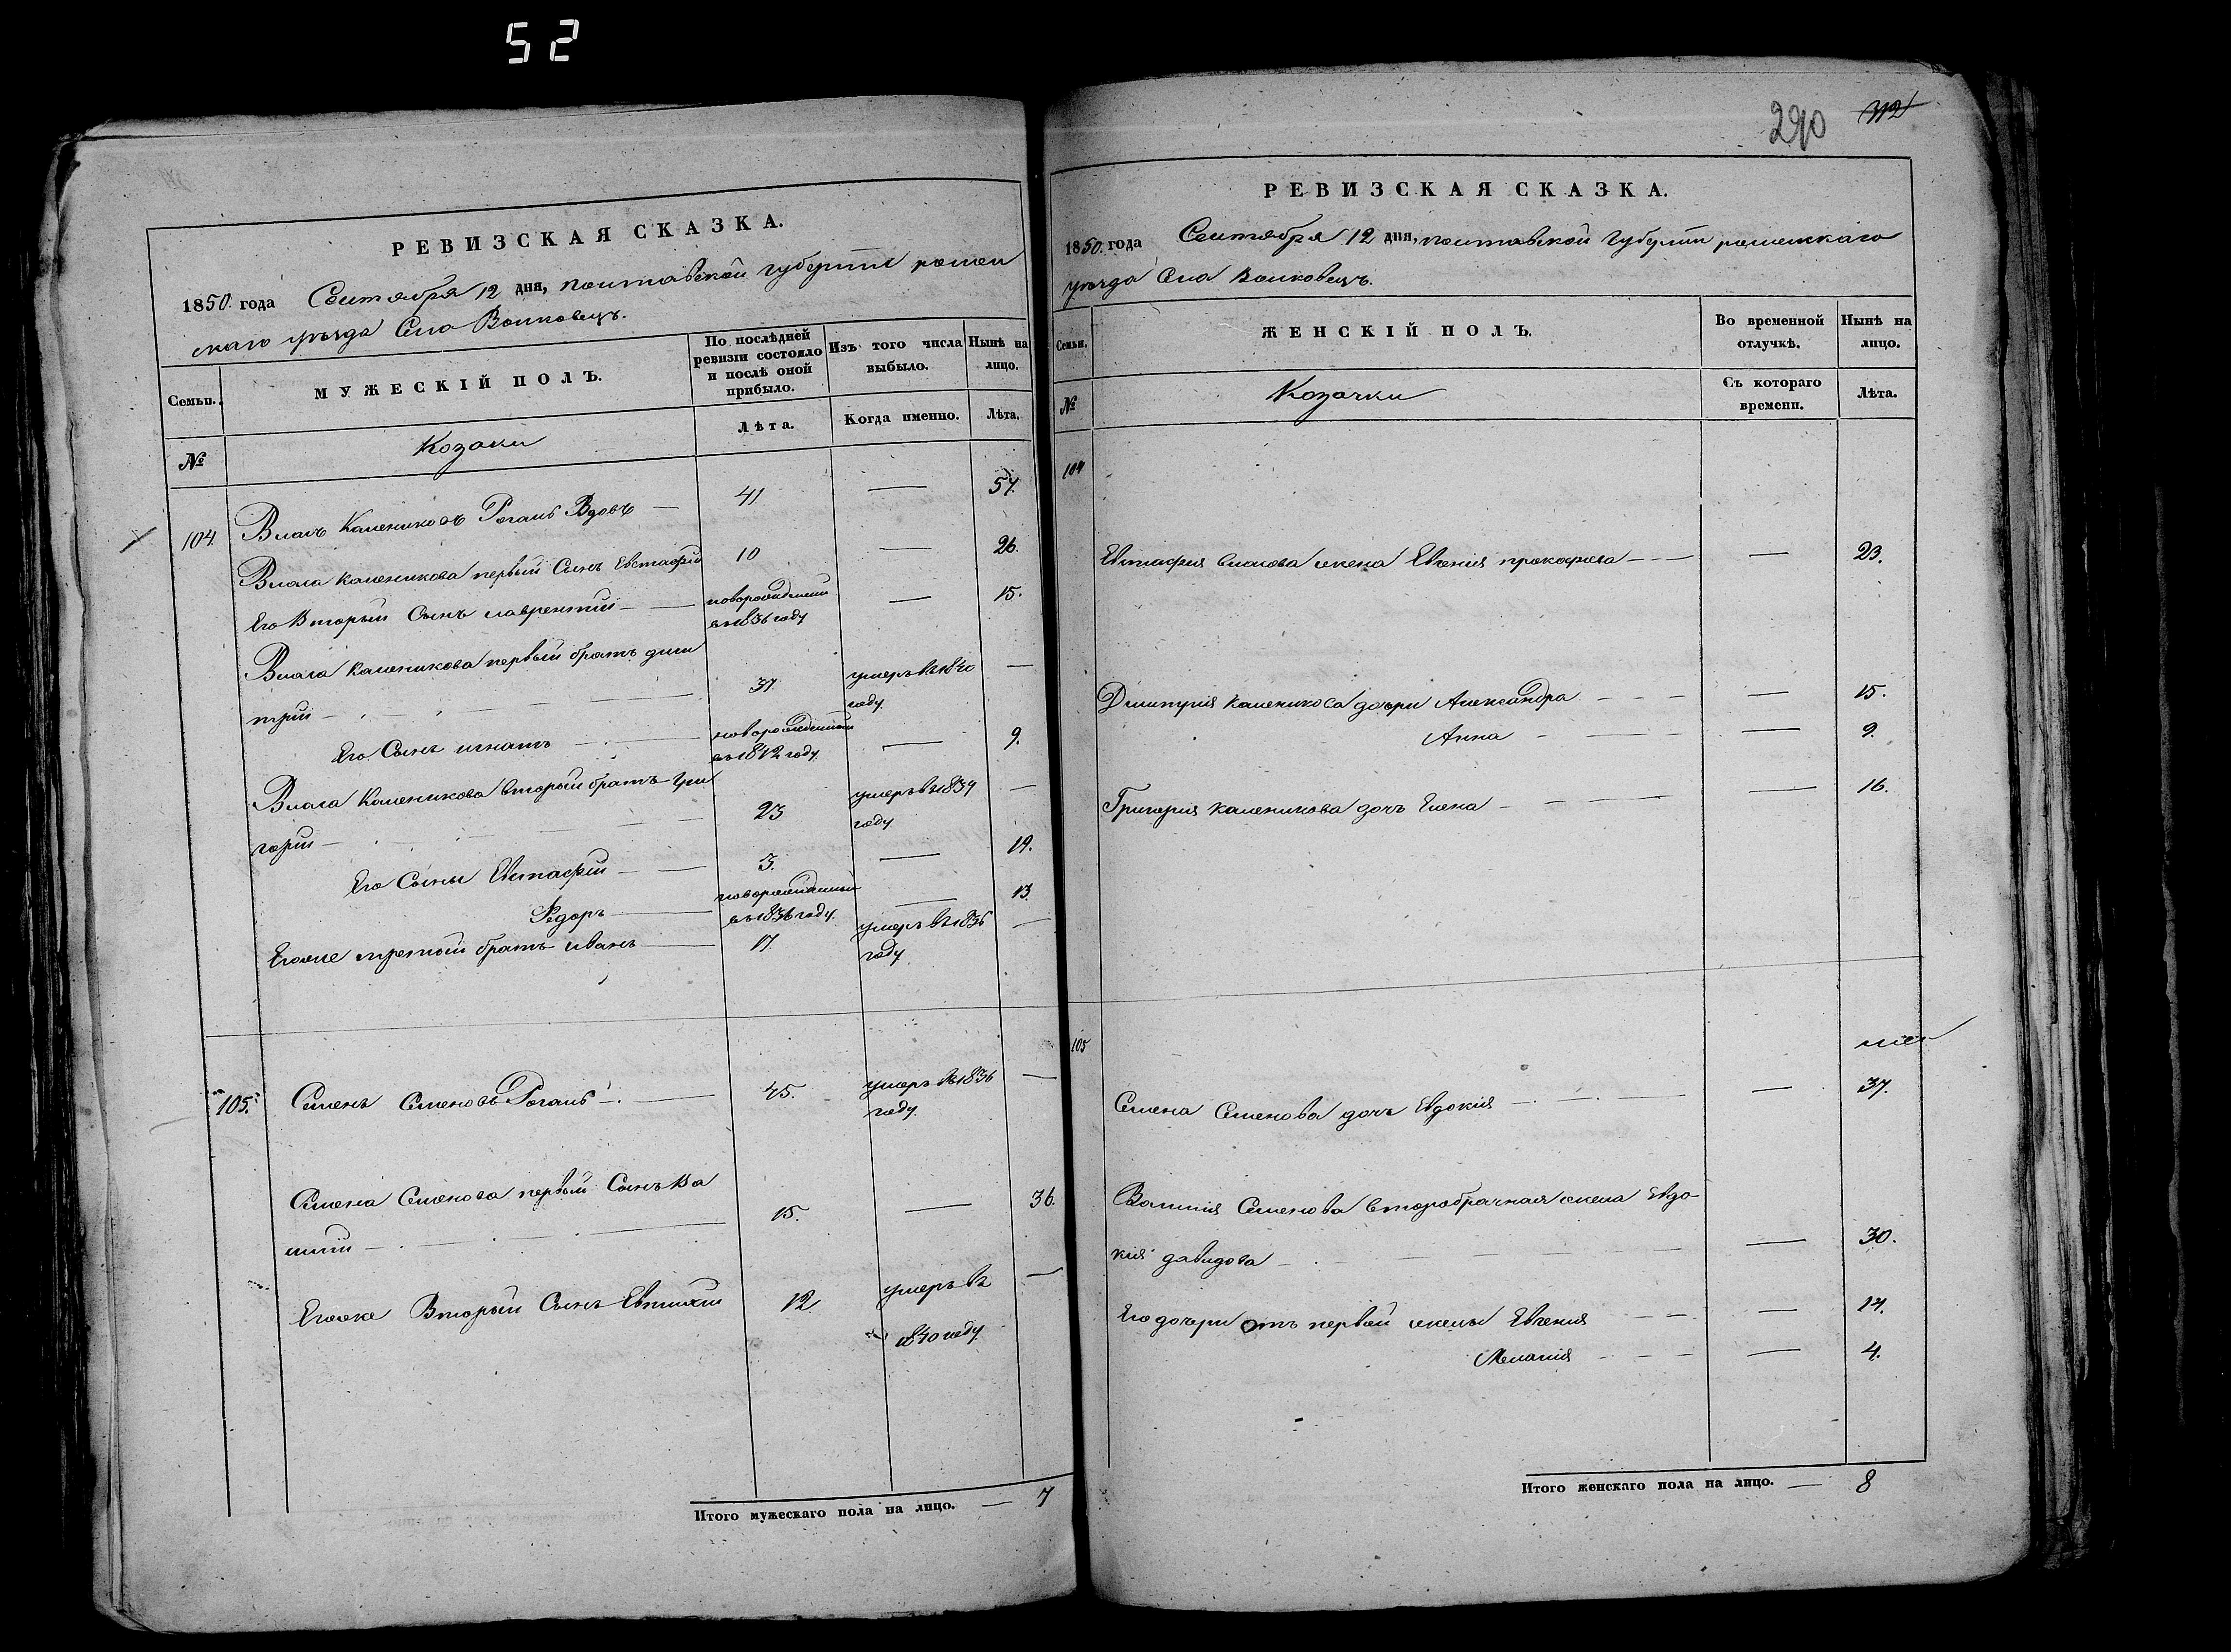 52
РЕВИЗСКАЯ СКАЗКА.
1850. года Сентября 12 дня, полтавской губернии ромен
скаго уезда Села Волковецъ.
Семьи.
МУЖЕСКІЙ ПОЛЪ.
По последней ревизіи состояло и после оной прибыло.
Изъ того числа выбыло.
Ныне на лицо.
№
Козаки
Лѣта.
Когда именно.
Лѣта.
104.
Власъ Калениковъ Рогаль Вдовъ — 41 — 57.
Власа каленикова первый Сынъ Евстафій 10 — 26.
Его Вторый Сынъ лаврентій — новорожденный — 15.
въ 1836 году
Власа каленикова первый братъ дми
трій — 37. умеръ въ 1840 —
году
Его Сынъ игнатъ — новорожденный — 9.
въ 1842 году
Власа Каленикова вторый братъ Гри
горій — 23 умеръ въ 1839 —
году
Его Сыны Евстафій — 3. — 19.
Федоръ — новорожденный — 13.
въ 1836 году.
Егоже третий братъ иванъ — 17. умеръ въ 1836 —
году
105.
Семенъ Семеновъ Рогаль — 45. умеръ въ 1836 —
году.
Семена Семенова первый Сынъ Ва
силій — 15. — 36.
Егоже Вторый Сынъ Евтихій 12 умеръ въ —
1840 году
Итого мужескаго пола на лицо. — 7
290 312
РЕВИЗСКАЯ СКАЗКА.
1850. года Сентября 12 дня, полтавской губерніи роменскаго
уезда Села Волковецъ.
Семьи.
ЖЕНСКІЙ ПОЛЪ.
Во временной отлучкѣ.
Нынѣ на лицо.
№
Козачки
Съ котораго времени.
Лѣта.
104
Евстафия власова жена Евгенія прокофьева — — 23.
Дмитрия каленикова дочри Александра — — 15.
Анна — — 9.
Григория каленикова дочъ Елена — — 16.
105
Семена Семенова дочъ Евдокія — — 37.
Василия Семенова второбрачная жена Евдо-
кия давидова — — 30.
Его дочери отъ первой жены Евгения — — 14.
Меланія — — 4.
Итого женскаго пола на лицо. — 8